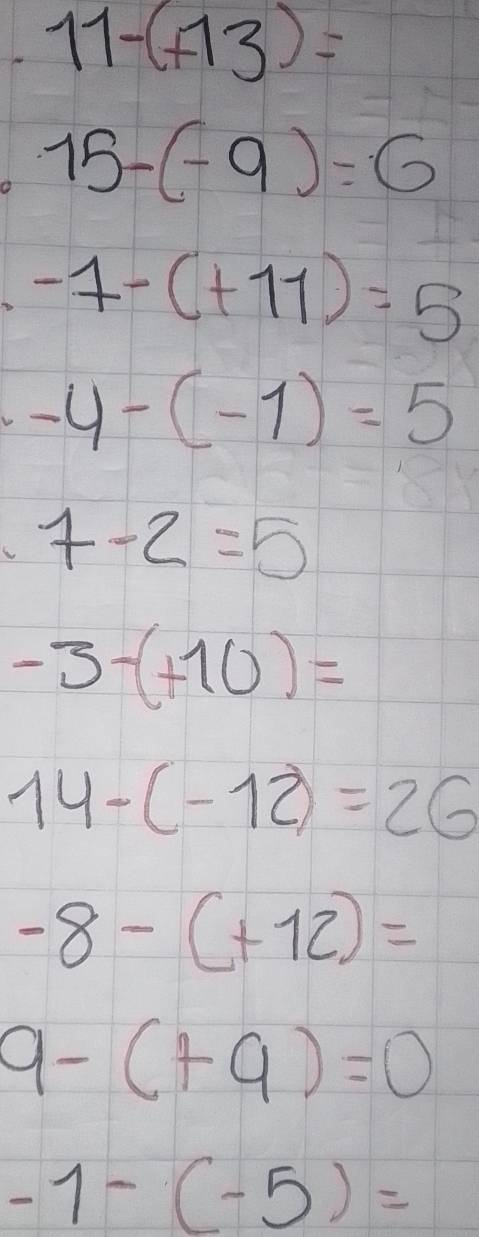 . 11-(+13)=
. 15-(-9)=6
. -7-(+11)=5
. -4-(-1)=5
. 7-2=5
-3-(+10)=
14-(-12)=26
-8-(+12)=
9-(+9)=0
-1-(-5)=